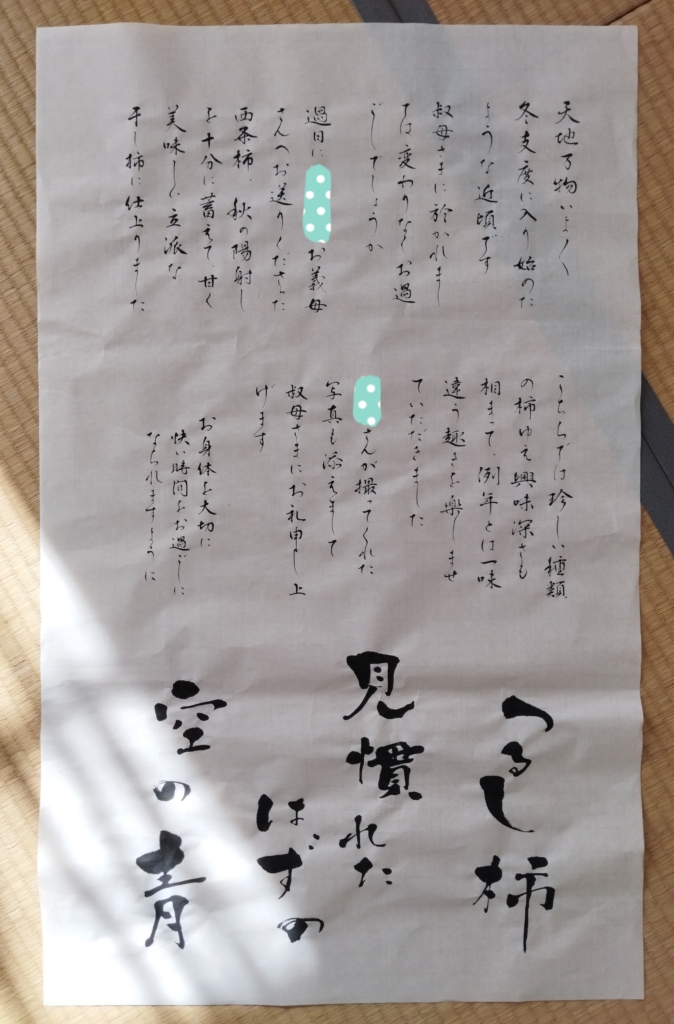 天地万物いよ〱
冬支度に入り始めた
ような近頃です
叔母さまに於かれまし
ては変わりなくお過
ごしでしょうか
過日に
お義母
さんへお送りくださった
西条柿、秋の陽射し
を十分に蓄えて甘く
美味しく立派な
干し柿に仕上りました
こちらでは珍しい種類
の柿ゆえ興味深さも
相まって、例年とは一味
違う趣きを楽しませ
ていただきました
さんが撮ってくれた
写真も添えまして
叔母さまにお礼申し上
げます
お身体を大切に
快い時間をお過ごしに
なられますように
つるし柿
見慣れた
はずの
空の青